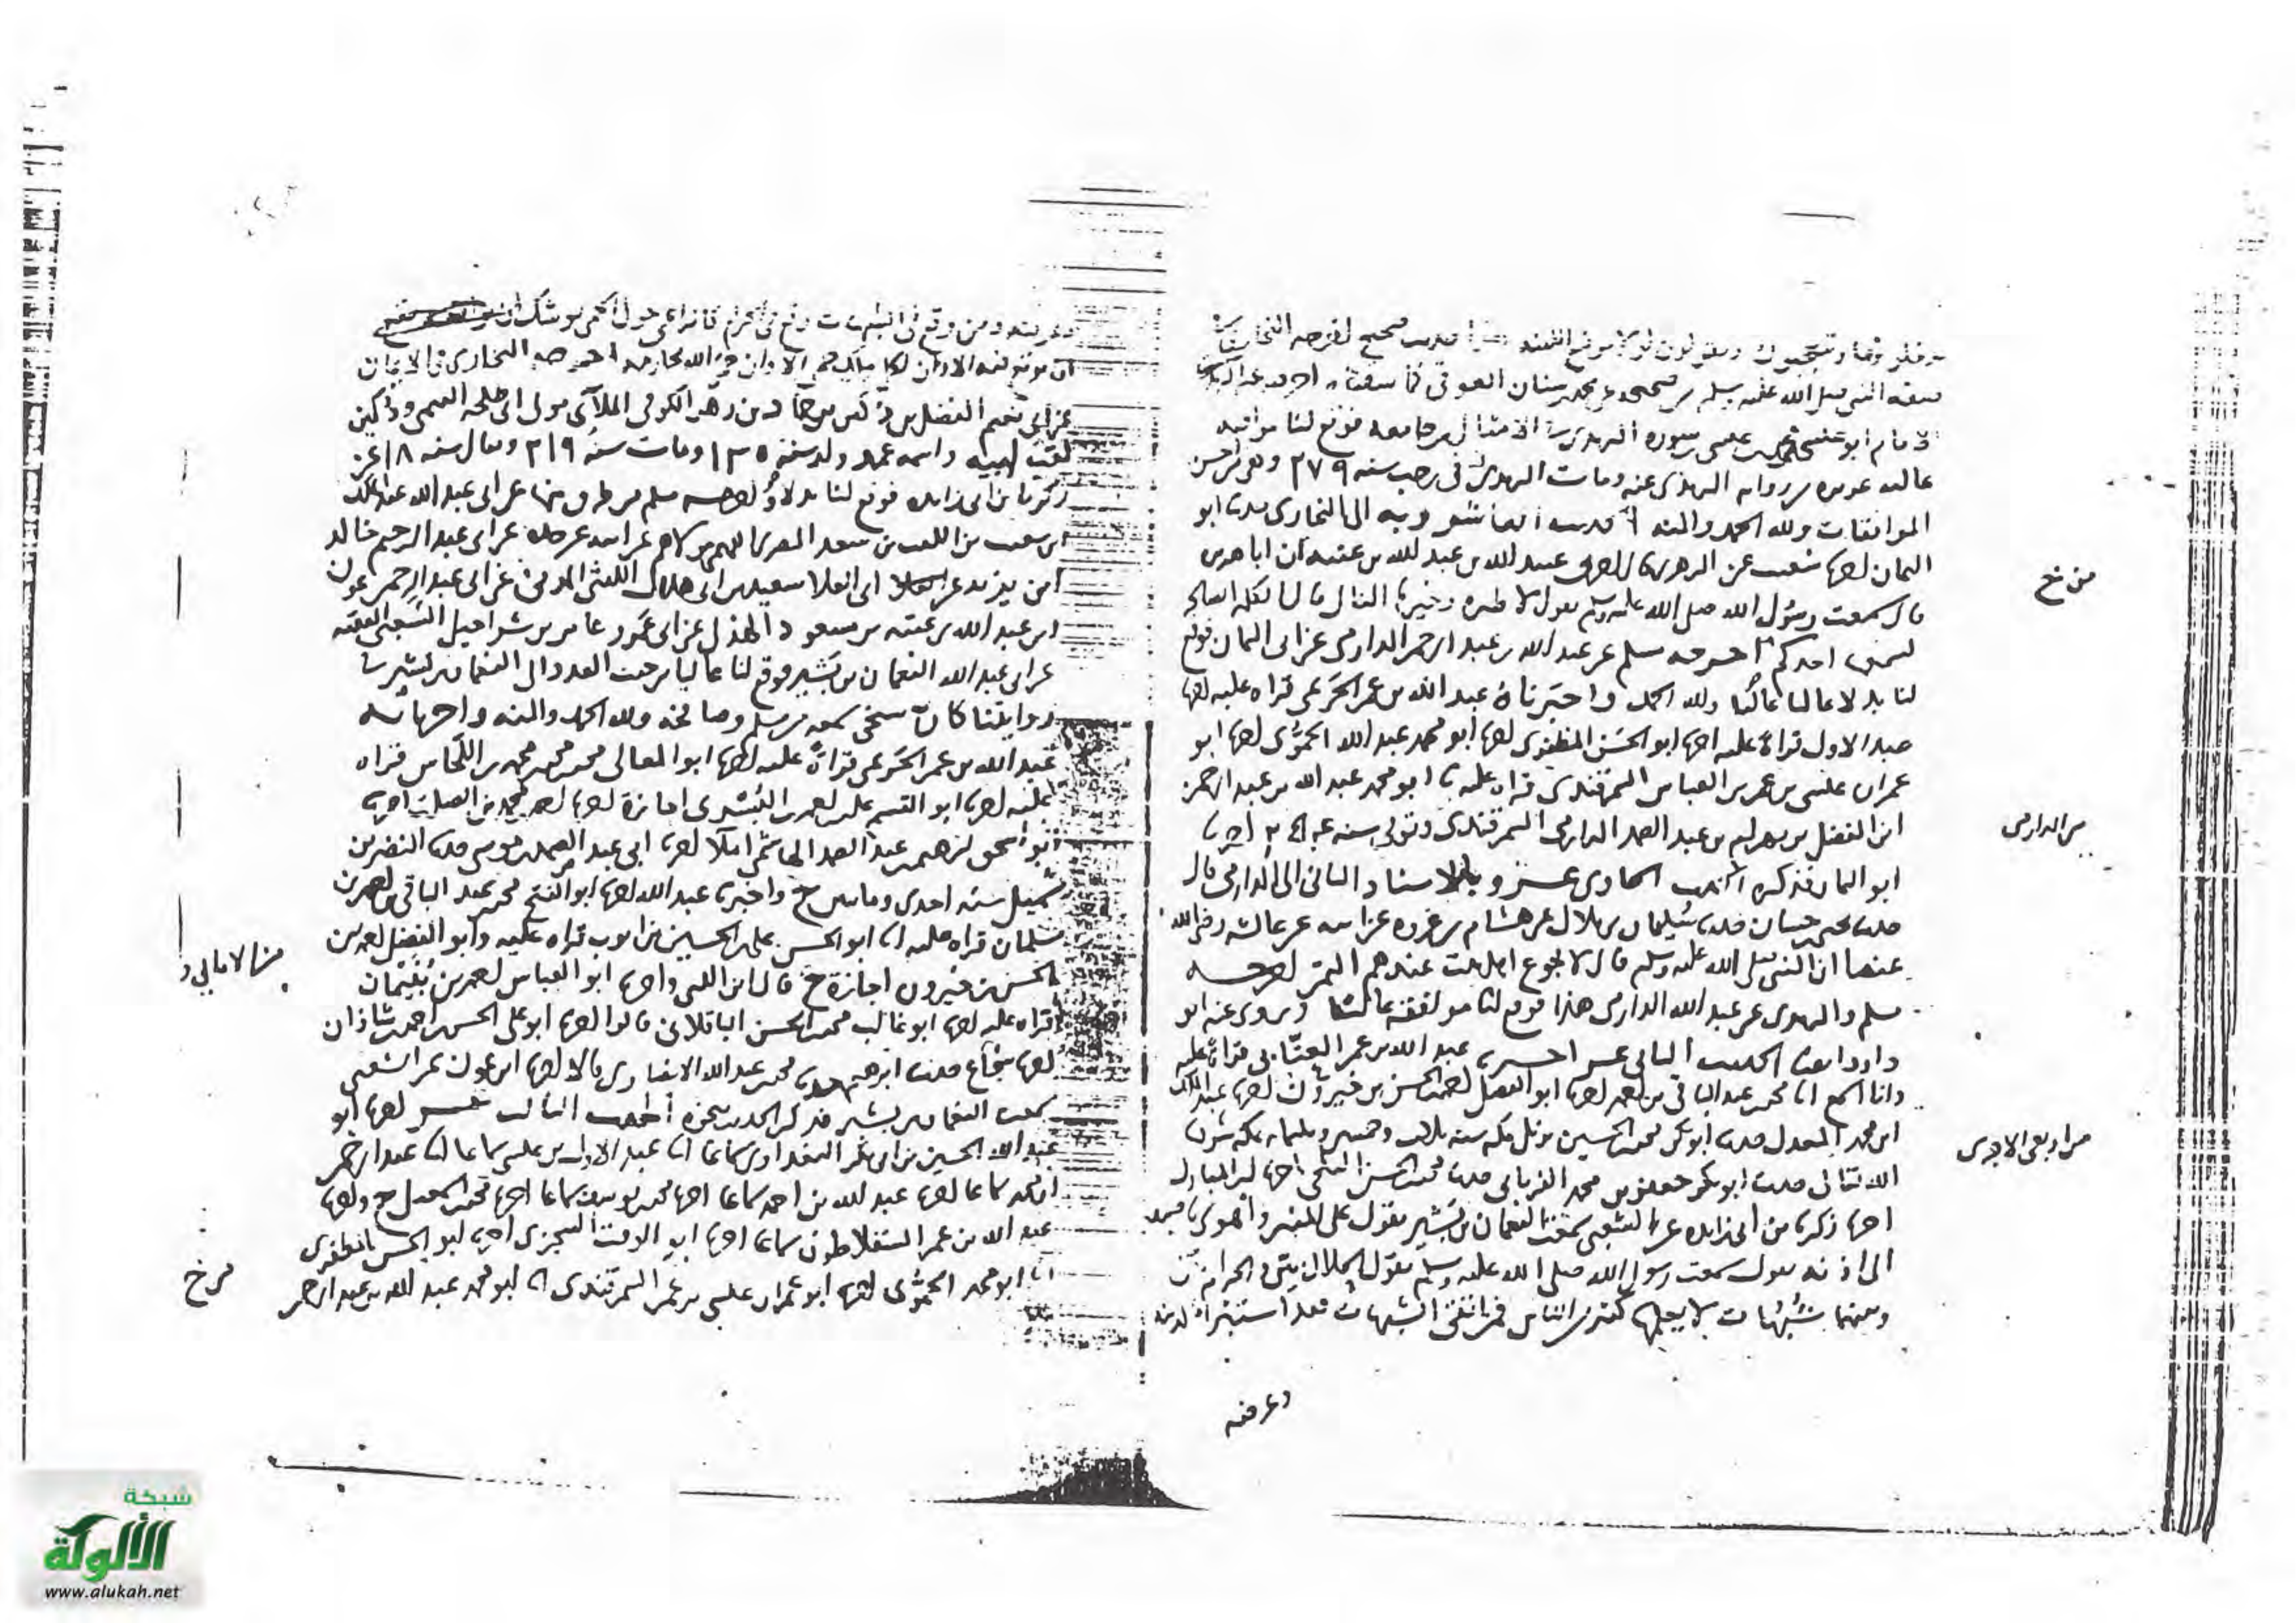 ويقولون لولا موضع اللبنة هذا حديث صحيح اخرجه البخاري
صفة النبي صلى الله عليه وسلم من صحيحه عن محمد بن سنان العوقي
الامام ابو عيسى محمد بن عيسى بن سورة الترمذي الامثال من جامعه فوقع لنا موافقة
عالية عزيزة من رواية الترمذي عنه ومات الترمذي في رجب سنة ٢٧٩ وهو من احسن
الموافقات ولله الحمد والمنة الحديث العاشر وبه الى البخاري حدثنا ابو
اليمان اخبرنا شعيب عن الزهري اخبرني عبيد الله بن عبد الله بن عتبة ان ابا هريرة
قال سمعت رسول الله صلى الله عليه وسلم يقول لا طيرة وخيرها الفال قالوا الكلمة الصالحة
يسمعها احدكم اخرجه مسلم عن عبد الله بن عبد الرحمن الدارمي عن ابي اليمان فوقع
لنا بدلا عاليا ولله الحمد واخبرناه عبد الله بن عمر الحرمي قراة عليه اخبرنا
عبد الاول قراة عليه اخبرنا ابو الحسن المظفري اخبرنا ابو محمد عبد الله الحموي اخبرنا ابو
عمران عيسى بن عمر بن العباس السمرقندي قراة عليه ابو محمد عبد الله بن عبد الرحمن
ابن الفضل بن بهرام بن عبد الصمد الدارمي السمرقندي وتوفي سنة اخبرنا
ابو اليمان فذكره الحديث الحادي عشر وبالاسناد الثاني الى الدارمي قال
حدثنا يحيى بن حسان حدثنا سليمان بن بلال عن هشام بن عروة عن ابيه عن عائشة رضي الله
عنها ان النبي صلى الله عليه وسلم قال لا يجوع اهل بيت عندهم التمر اخرجه
مسلم والترمذي عن عبد الله الدارمي هذا فوقع لنا موافقة عالية وروى عنه ابو
داود ايضا الحديث الثاني عشر اخبرنا عبد الله بن عمر العتابي قراة عليه
وانا اسمع انا محمد بن عبد الباقي بن احمد اخبرنا ابو الفضل احمد بن الحسن بن خيرون اخبرنا عبد الملك
ابن محمد المعدل حدثنا ابو بكر محمد بن الحسين نزيل مكة سنة ثلاث وخمسين وثلثمائة بمكة شرفها
الله تعالى حدثنا ابو بكر جعفر بن محمد الفريابي حدثنا محمد بن الحسن البلخي اخبرنا ابن المبارك
اخبرنا زكريا بن ابي زايدة عن الشعبي سمعت النعمان بن بشير يقول على المنبر واهوى باصبعيه
الى اذنيه يقول سمعت رسول الله صلى الله عليه وسلم يقول الحلال بين والحرام بين
وبينهما شبهات لا يعلمها كثير من الناس فمن اتقى الشبهات فقد استبرا لدينه
وعرضه
من خ
من الدارمي
من اربعي الاجري
وعرضه ومن وقع في الشبهات وقع في الحرام كالراعي حول الحمى يوشك ان
ان يوقع فيه الا وان لكل ملك حمى الا وان حمى الله محارمه اخرجه البخاري في الايمان
عن ابي نعيم الفضل بن دكين بن حماد بن زهير الكوفي الملائي مولى ال طلحة التيمي ودكين
لقب ابيه واسمه عمرو ولد سنة ١٣٠ ومات سنة ٢١٩ ويقال سنة ١٨ عن
زكريا بن ابي زايدة فوقع لنا بدلا واخرجه مسلم من طرق منها عن ابي عبد الله عبد الملك
ابن شعيب بن الليث بن سعد المصري الفهمي مولاهم عن ابيه عن جده عن ابي عبد الرحيم خالد
ابن يزيد عن ابي العلا سعيد بن ابي هلال الليثي المدني عن ابي عبد الرحمن عون
ابن عبد الله بن عتبة بن مسعود الهذلي عن ابي عمرو عامر بن شراحيل الشعبي الفقيه
عن ابي عبد الله النعمان بن بشير فوقع لنا عاليا من حيث العدد الى النعمان بن بشير
روايتنا كان شيخي سمعه من مسلم وصافحته ولله الحمد والمنة واخبرنا به
عبد الله بن عمر الحرمي قراة عليه اخبرنا ابو المعالي محمد بن محمد بن محمد بن اللحاس قراة
عليه اخبرنا ابو القسم علي بن احمد بن البسري اجازة اخبرنا احمد بن محمد بن الصلت اخبرنا
ابو اسحق ابرهيم بن عبد الصمد الهاشمي املا اخبرنا ابي عبد الصمد بن موسى حدثنا النضر بن
شميل سنة احدى ومايتين ح واخبرنا عبد الله اخبرنا ابو الفتح محمد بن عبد الباقي بن احمد بن
سلمان قراة عليه انا ابو الحسن علي بن الحسين بن ايوب قراة عليه وابو الفضل احمد بن
الحسن بن خيرون اجازة ح قال ابن اللتي واخبرنا ابو العباس احمد بن بنيمان
قراة عليه اخبرنا ابو غالب محمد بن الحسن الباقلاني قالوا اخبرنا ابو علي الحسن بن احمد بن شاذان
محمد بن عبد الله الانصاري قالا اخبرنا ابن عون عن الشعبي
سمعت النعمان بن بشير فذكر الحديث بنحوه الحديث الثالث عشر اخبرنا ابو
عبد الله الحسين بن ابي بكر البغدادي سماعا انا عبد الاول بن عيسى سماعا انا عبد الرحمن
ابن محمد سماعا اخبرنا عبد الله بن احمد سماعا اخبرنا محمد بن يوسف سماعا اخبرنا محمد بن اسمعيل ح واخبرنا
عبد الله بن عمر السقلاطوني سماعا اخبرنا ابو الوقت السجزي اخبرنا ابو الحسن المظفري
انا ابو محمد الحموي اخبرنا ابو عمران عيسى بن عمر السمرقندي انا ابو محمد عبد الله بن عبد الرحمن
من الامالي
من خ
شبكة
الألوكة
www.alukah.net